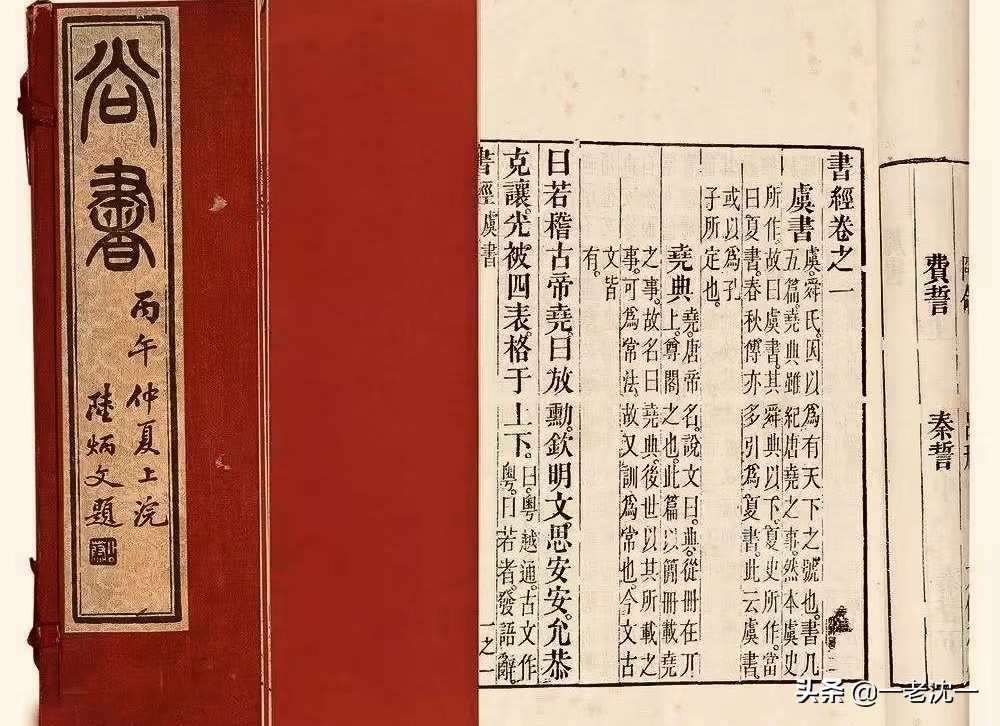 尚書
丙午仲夏上浣
陸炳文題
費誓
秦誓
書經卷之一
虞書 虞。舜氏。因以為有天下之號也。書凡
五篇。堯典雖紀唐堯之事。然本虞史
所作。故曰虞書。其舜典以下。夏史所作。當
曰夏書。春秋傳亦多引為夏書。此云虞書。
或以為孔
子所定也。
堯典 堯。唐帝名。說文曰。典。從冊在丌
上。尊閣之也。此篇以簡冊載堯
之事。故名曰堯典。後世以其所載之
事。可為常法。故又訓為常也。今文古
文皆
有。
曰若稽古帝堯。曰放勳。欽明文。思安安。允恭
克讓。光被四表。格于上下。曰。粵越通。古文作
粵。曰若者。發語辭
書經 虞書 一之一
头条 @一老沈一